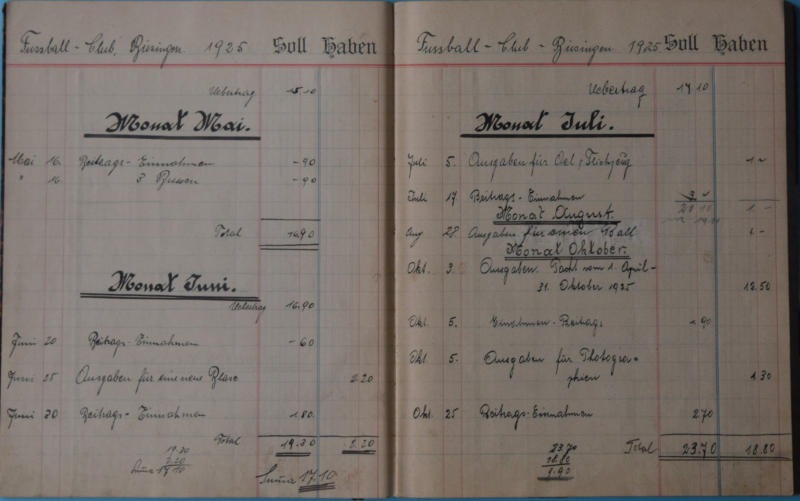 Fussball - Club, Büsingen 1925 Soll Haben
Uebertrag 15.10
Monat Mai.
Mai 16. Beitrags - Einnahmen -90
" 16. -90
Total 16.90
Monat Juni.
Uebertrag 16.90
Juni 20 Beitrags - Einnahmen -60
Juni 25 Ausgaben für eine neue Blase 2.20
Juni 30 Beitrags - Einnahmen 1.80
Total 19.30 2.20
19.30
2.20
17.10
Suma 17.10
Fussball - Club - Büsingen 1925 Soll Haben
Uebertrag 17 10
Monat Juli.
Juli 5. Ausgaben für Oel, Flickzeug 1 -
Juli 17. Beitrags - Einnahmen 3 -
20 10 1. -
Monat August.
Aug 28. Ausgaben für einen Ball
Monat Oktober.
Okt. 3. Ausgaben. Pacht vom 1. April -
31. Oktober 1925 12.50
Okt. 5. Einnahmen - Beitrags 1.90
Okt. 5. Ausgaben für Photogra-
phien 1.30
Okt. 25 Beitrags - Einnahmen 2.70
Total 23.70 18.80
23.70
18.80